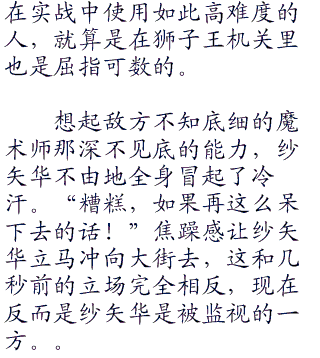 在实战中使用如此高难度的
人，就算是在狮子王机关里
也是屈指可数的。
想起敌方不知底细的魔
术师那深不见底的能力，纱
矢华不由地全身冒起了冷
汗。“糟糕，如果再这么呆
下去的话！”焦躁感让纱矢
华立马冲向大街去，这和几
秒前的立场完全相反，现在
反而是纱矢华是被监视的一
方。。